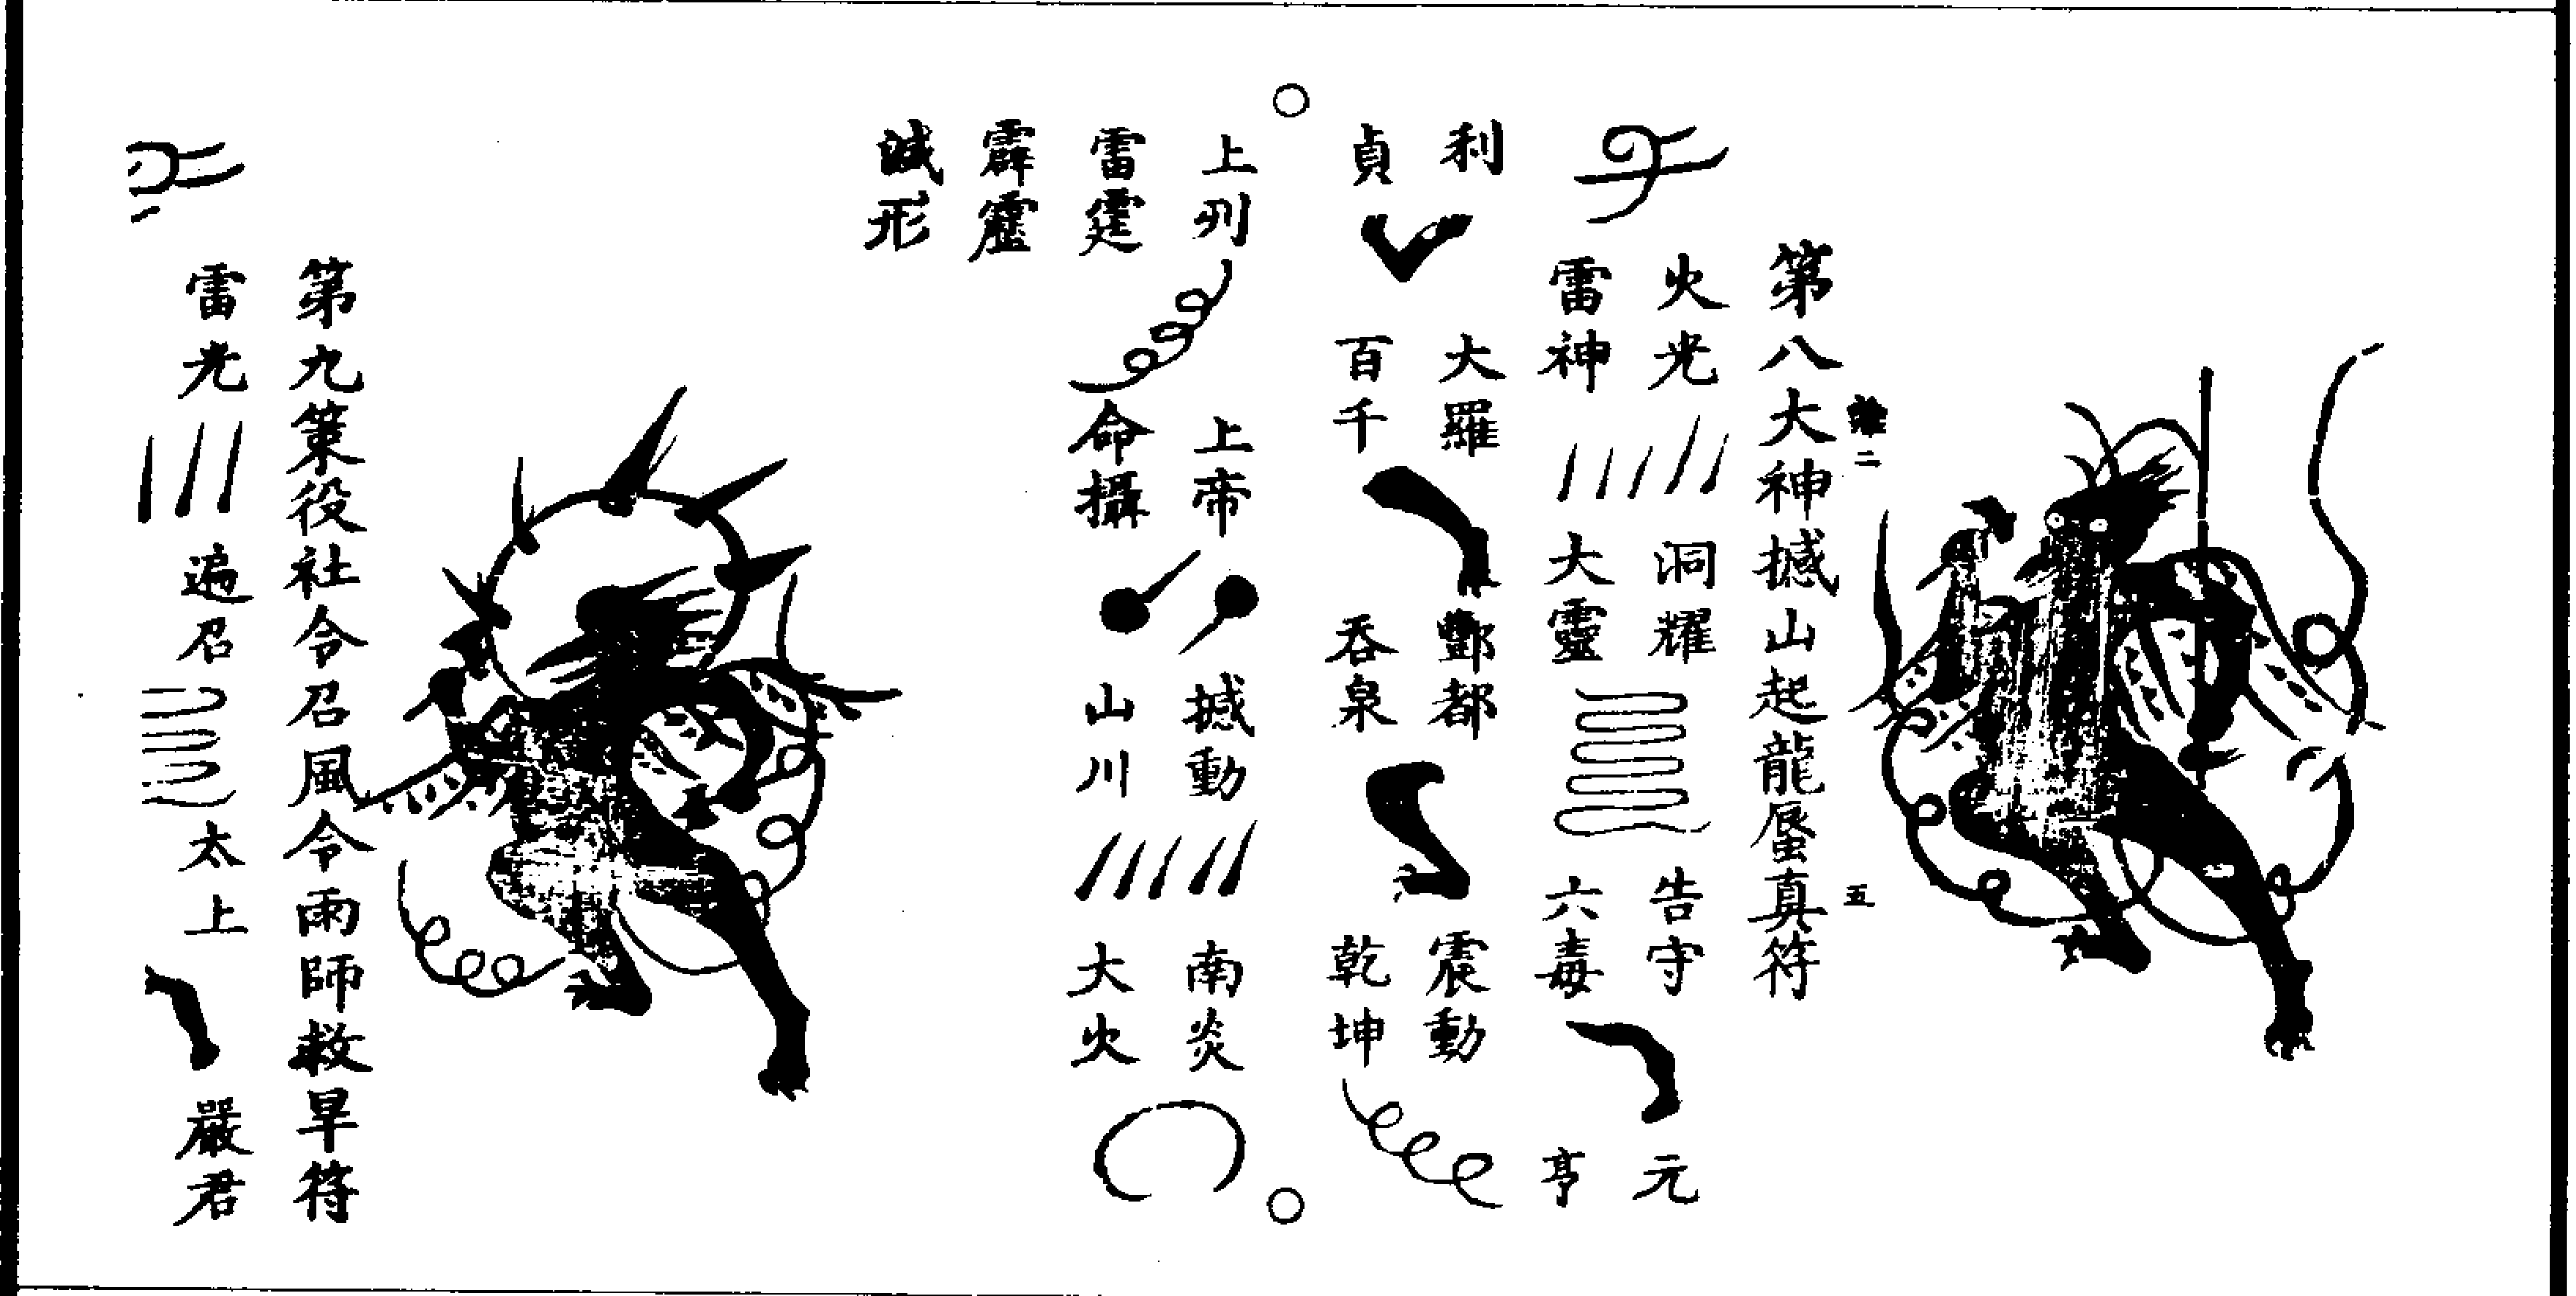 二 五
第八大神撼山起龍蜃真符
火光 洞耀 告守 元
雷神 大靈 六毒 亨
利 大羅 酆都 震動
貞 百千 吞泉 乾坤
上列 上帝 撼動 南炎
雷霆 命攝 山川 大火
霹靂
滅形
第九策役社令召風令雨師救旱符
雷光 遍召 太上 嚴君